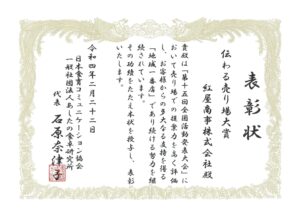 表彰状
伝わる売り場大賞
紅屋商事株式会社殿
貴殿は「第十五回全国活動発表大会」に
おいて売り場での提案力を高く評価
し、お客様からの多大なる支持を得る
「地域一番店」であり続ける努力を継
続されています。
その功績をたたえ本状を授与し、表彰
いたします。
令和四年二月二十二日
日本食育コミュニケーション協会
一般社団法人あしたの食卓研究所
代表 石原奈津子